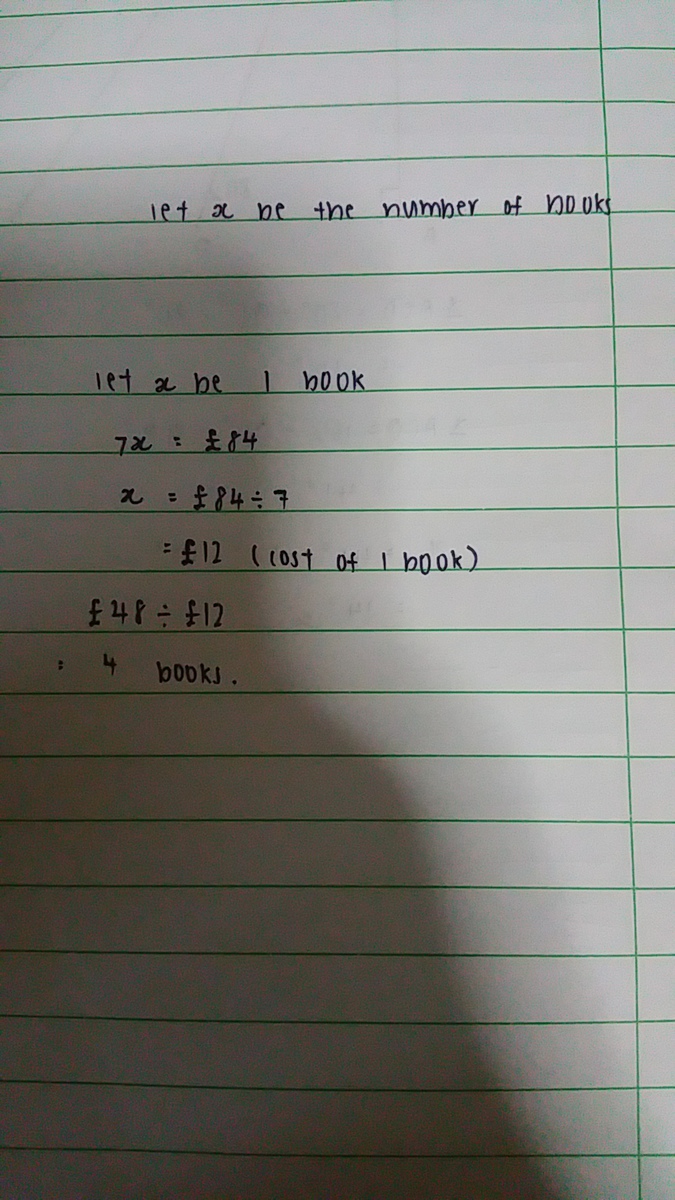 let x be the number of books
let x be 1 book
7x = £84
x = £84 ÷ 7
= £12 (cost of 1 book)
£48 ÷ £12
= 4 books.